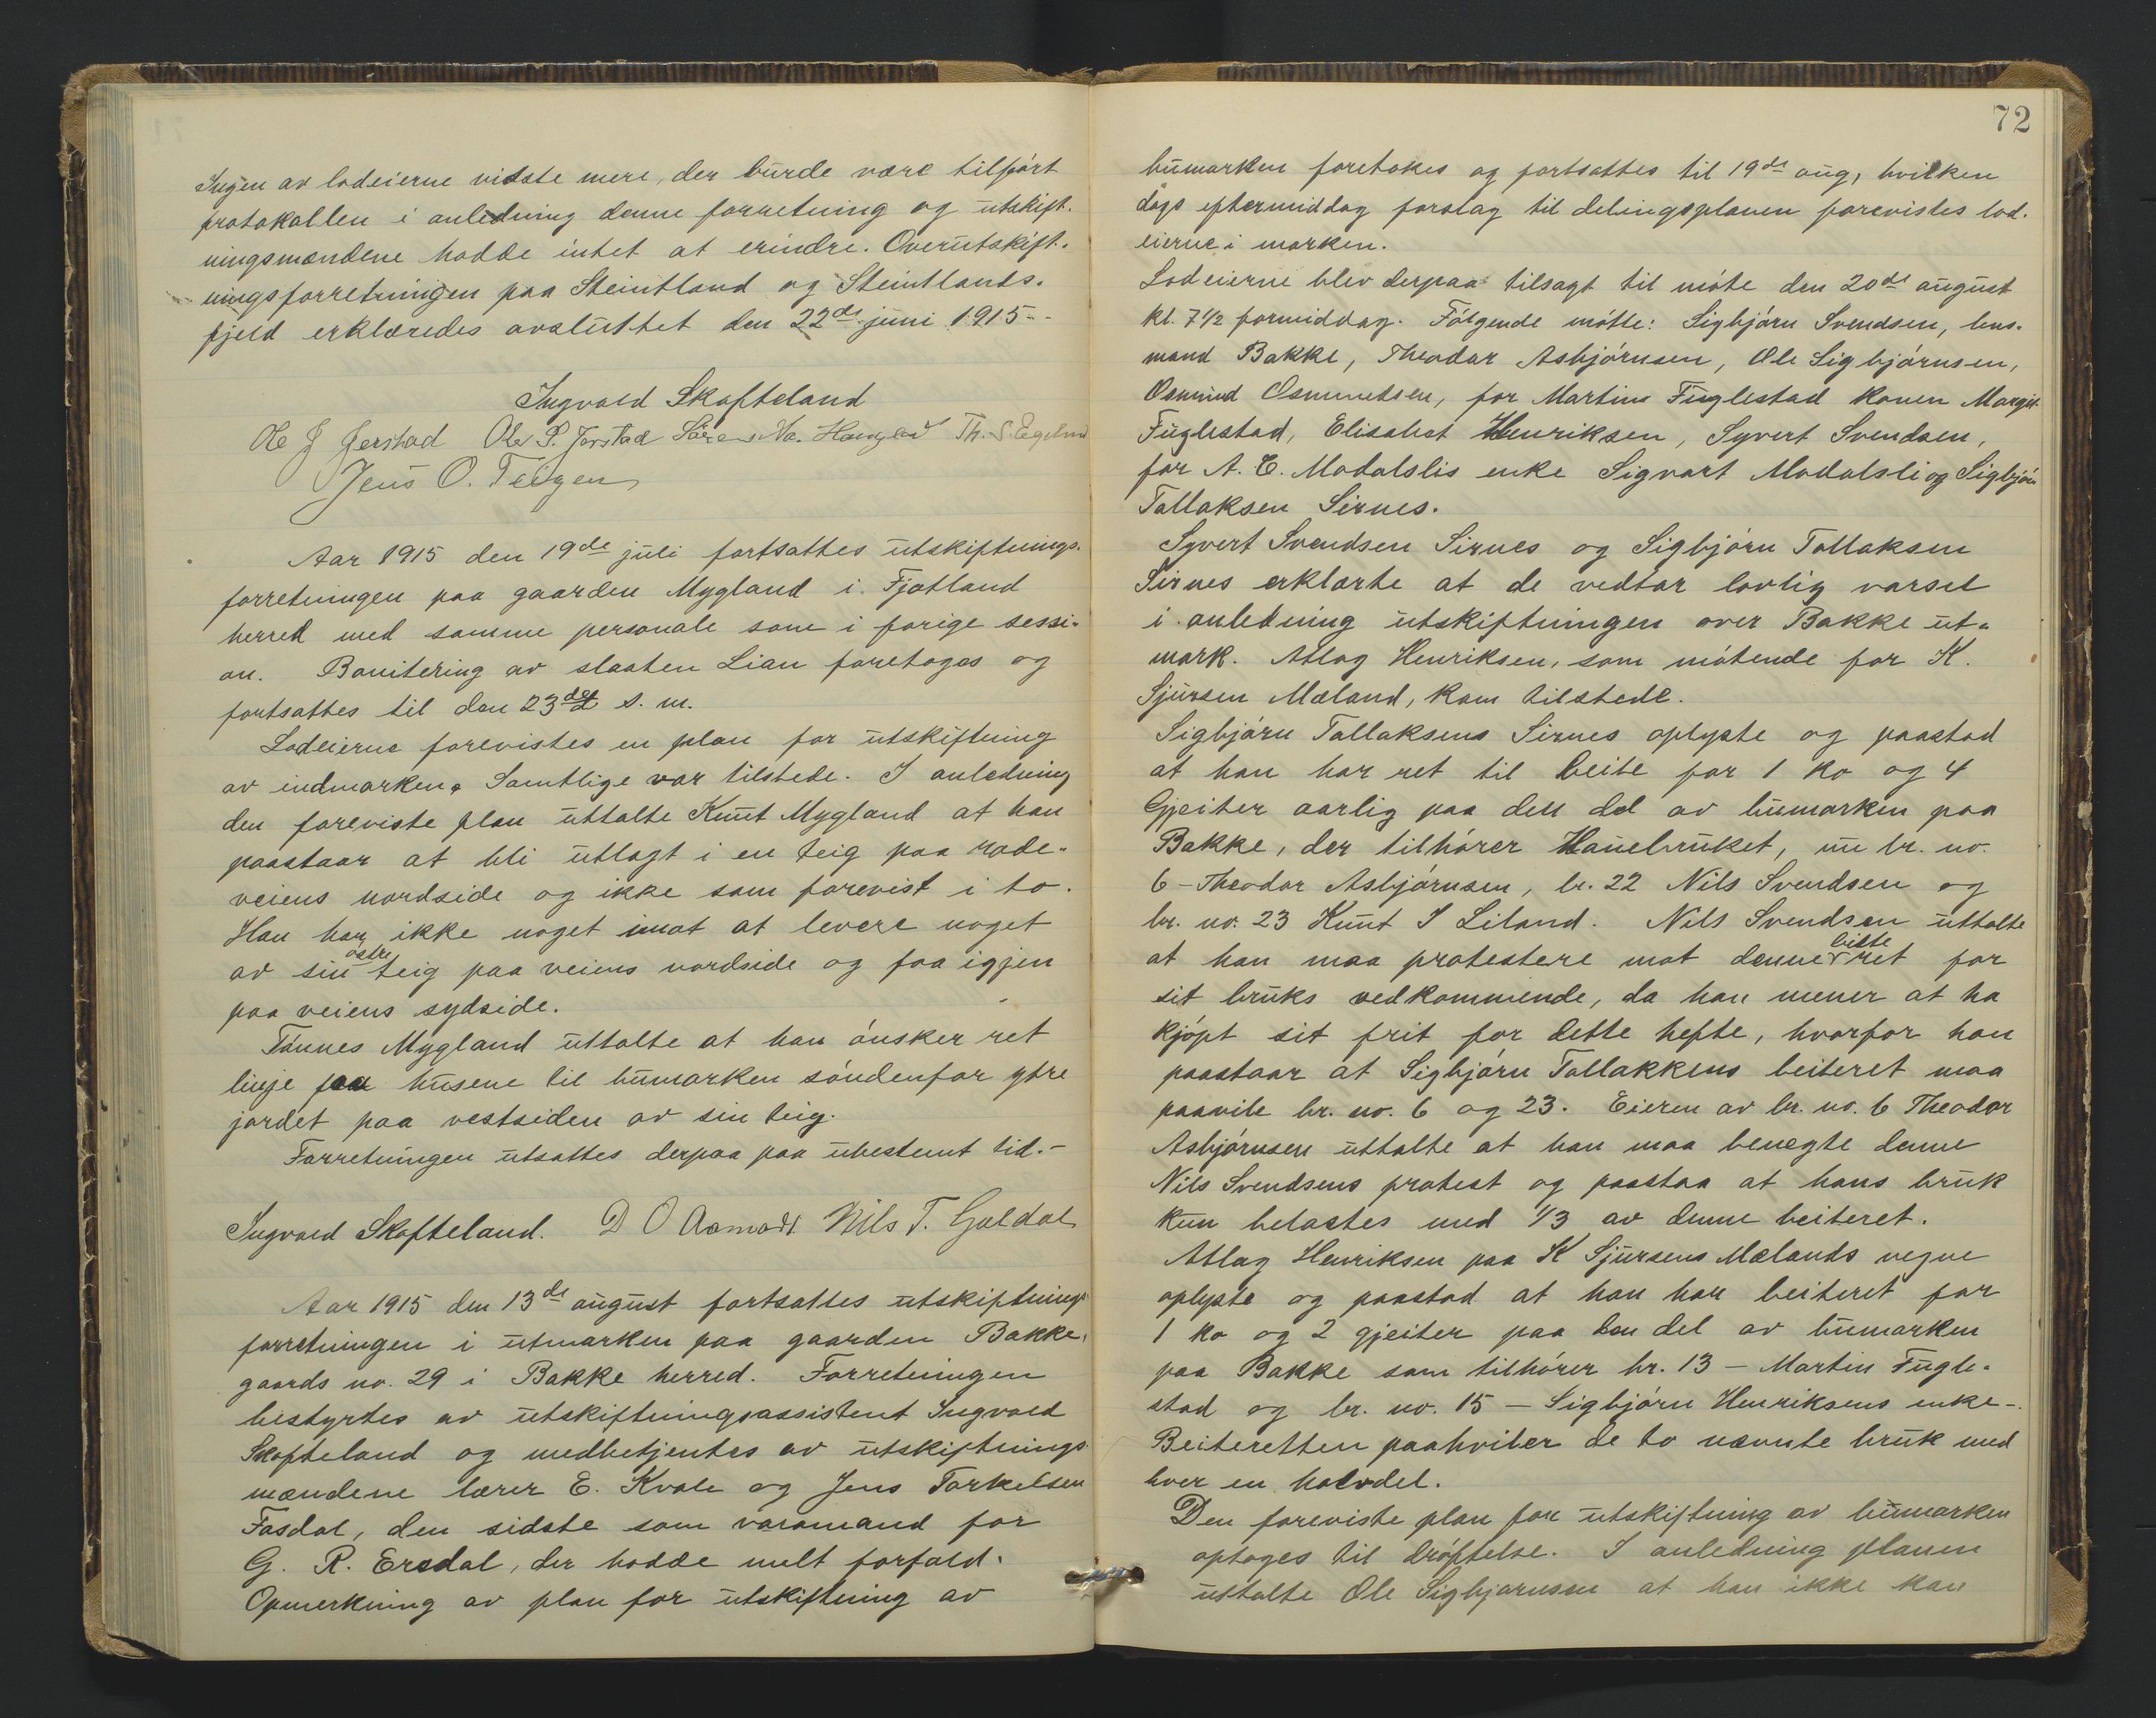 Ingen av lodeierne vidste mere, der burde være tilført
protokollen i anledning denne forretning og utskift-
ningsmændene hadde intet at erindre. Overutskift-
ningsforretningen paa Steintland og Steintlands-
fjeld erklæredes avsluttet den 22de juni 1915--
Ingvald Skofteland
Ole J Jerstad Ole S. Jerstad Sören Na. Th. S. Egeland
Jens O. Teigen
Aar 1915 den 19de juli fortsattes utskiftnings-
forretningen paa gaarden Mygland i Fjotland
herred med samme personale som i forige sessi-
on. Bonitering av slaaten Lian foretoges og
fortsattes til den 23de s. m.
Lodeierne forevistes en plan for utskiftning
av indmarken. Samtlige var tilstede. I anledning
den foreviste plan uttalte Knut Mygland at han
paastaar at bli utlagt i en teig paa rode-
veiens nordside og ikke som forevist i to.
Han har ikke noget imot at levere noget
av sin østre teig paa veiens nordside og faa igjen
paa veiens sydside.
Tønnes Mygland uttalte at han ønsker ret
linje fra husene til bumarken søndenfor ytre
jordet paa vestsiden av sin teig.
Forretningen utsattes derpaa paa ubestemt tid.-
Ingvald Skofteland. D O Aamodt Nils T. Galdal
Aar 1915 den 13de august fortsattes utskiftnings-
forretningen i utmarken paa gaarden Bakke,
gaards no. 29 i Bakke herred. Forretningen
bestyrtes av utskiftningsassistent Ingvald
Skofteland og medbetjentes av utskiftnings-
mændene lærer E. Kvale og Jens Torkelsen
Fosdal, den sidste som varamand for
G. R. Ersdal, der hadde meldt forfald.
Opmerkning av plan for utskiftning av
72
bumarken foretokes og fortsattes til 19de aug, hvilken
dags eftermiddag forslag til delingsplanen forevistes lod-
eierne i marken.
Lodeierne blev derpaa tilsagt til møte den 20de august
kl. 7½ formiddag. Følgende møtte: Sigbjørn Svendsen, lens-
mand Bakke, Theodor Asbjørnsen, Ole Sigbjørnsen,
Osmund Osmundsen, for Martin Fuglestad konen Margit
Fuglestad, Elisabet Henriksen, Syvert Svendsen,
for A. E. Modalslis enke Sigvart Modalsli og Sigbjørn
Tallaksen Sirnes.
Syvert Svendsen Sirnes og Sigbjørn Tallaksen
Sirnes erklærte at de vedtar lovlig varsel
i anledning utskiftningen over Bakke ut-
mark. Atlag Henriksen, som møtende for K.
Sjursen Mæland, kom tilstede.
Sigbjørn Tallaksens Sirnes oplyste og paastod
at han har ret til beite for 1 ko og 4
Gjeiter aarlig paa den del av bumarken paa
Bakke, der tilhører Hauebruket, nu br. no.
6 - Theodor Asbjørnsen, br. 22 Nils Svendsen og
br. no. 23 Knut I Liland. Nils Svendsen uttalte
at han maa protestere mot denne beite ret for
sit bruks vedkommende, da han mener at ha
kjøpt sit frit for dette hefte, hvorfor han
paastaar at Sigbjørn Tallakkens beiteret maa
paavile br. no. 6 og 23. Eieren av br. no. 6 Theodor
Asbjørnsen uttalte at han maa benegte denne
Nils Svendsens protest og paastaa at hans bruk
kun belastes med 1/3 av denne beiteret.
Atlag Henriksen paa K Sjursens Mælands vegne
oplyste og paastod at han har beiteret for
1 ko og 2 gjeiter paa den del av bumarken
paa Bakke som tilhører br. 13 - Martin Fugle-
stad og br. no. 15 - Sigbjørn Henriksens enke-.
Beiteretten paahviler de to nævnte bruk med
hver en halvdel.
Den foreviste plan for utskiftning av bumarken
optoges til drøftelse. I anledning planen
uttalte Ole Sigbjørnsen at han ikke kan